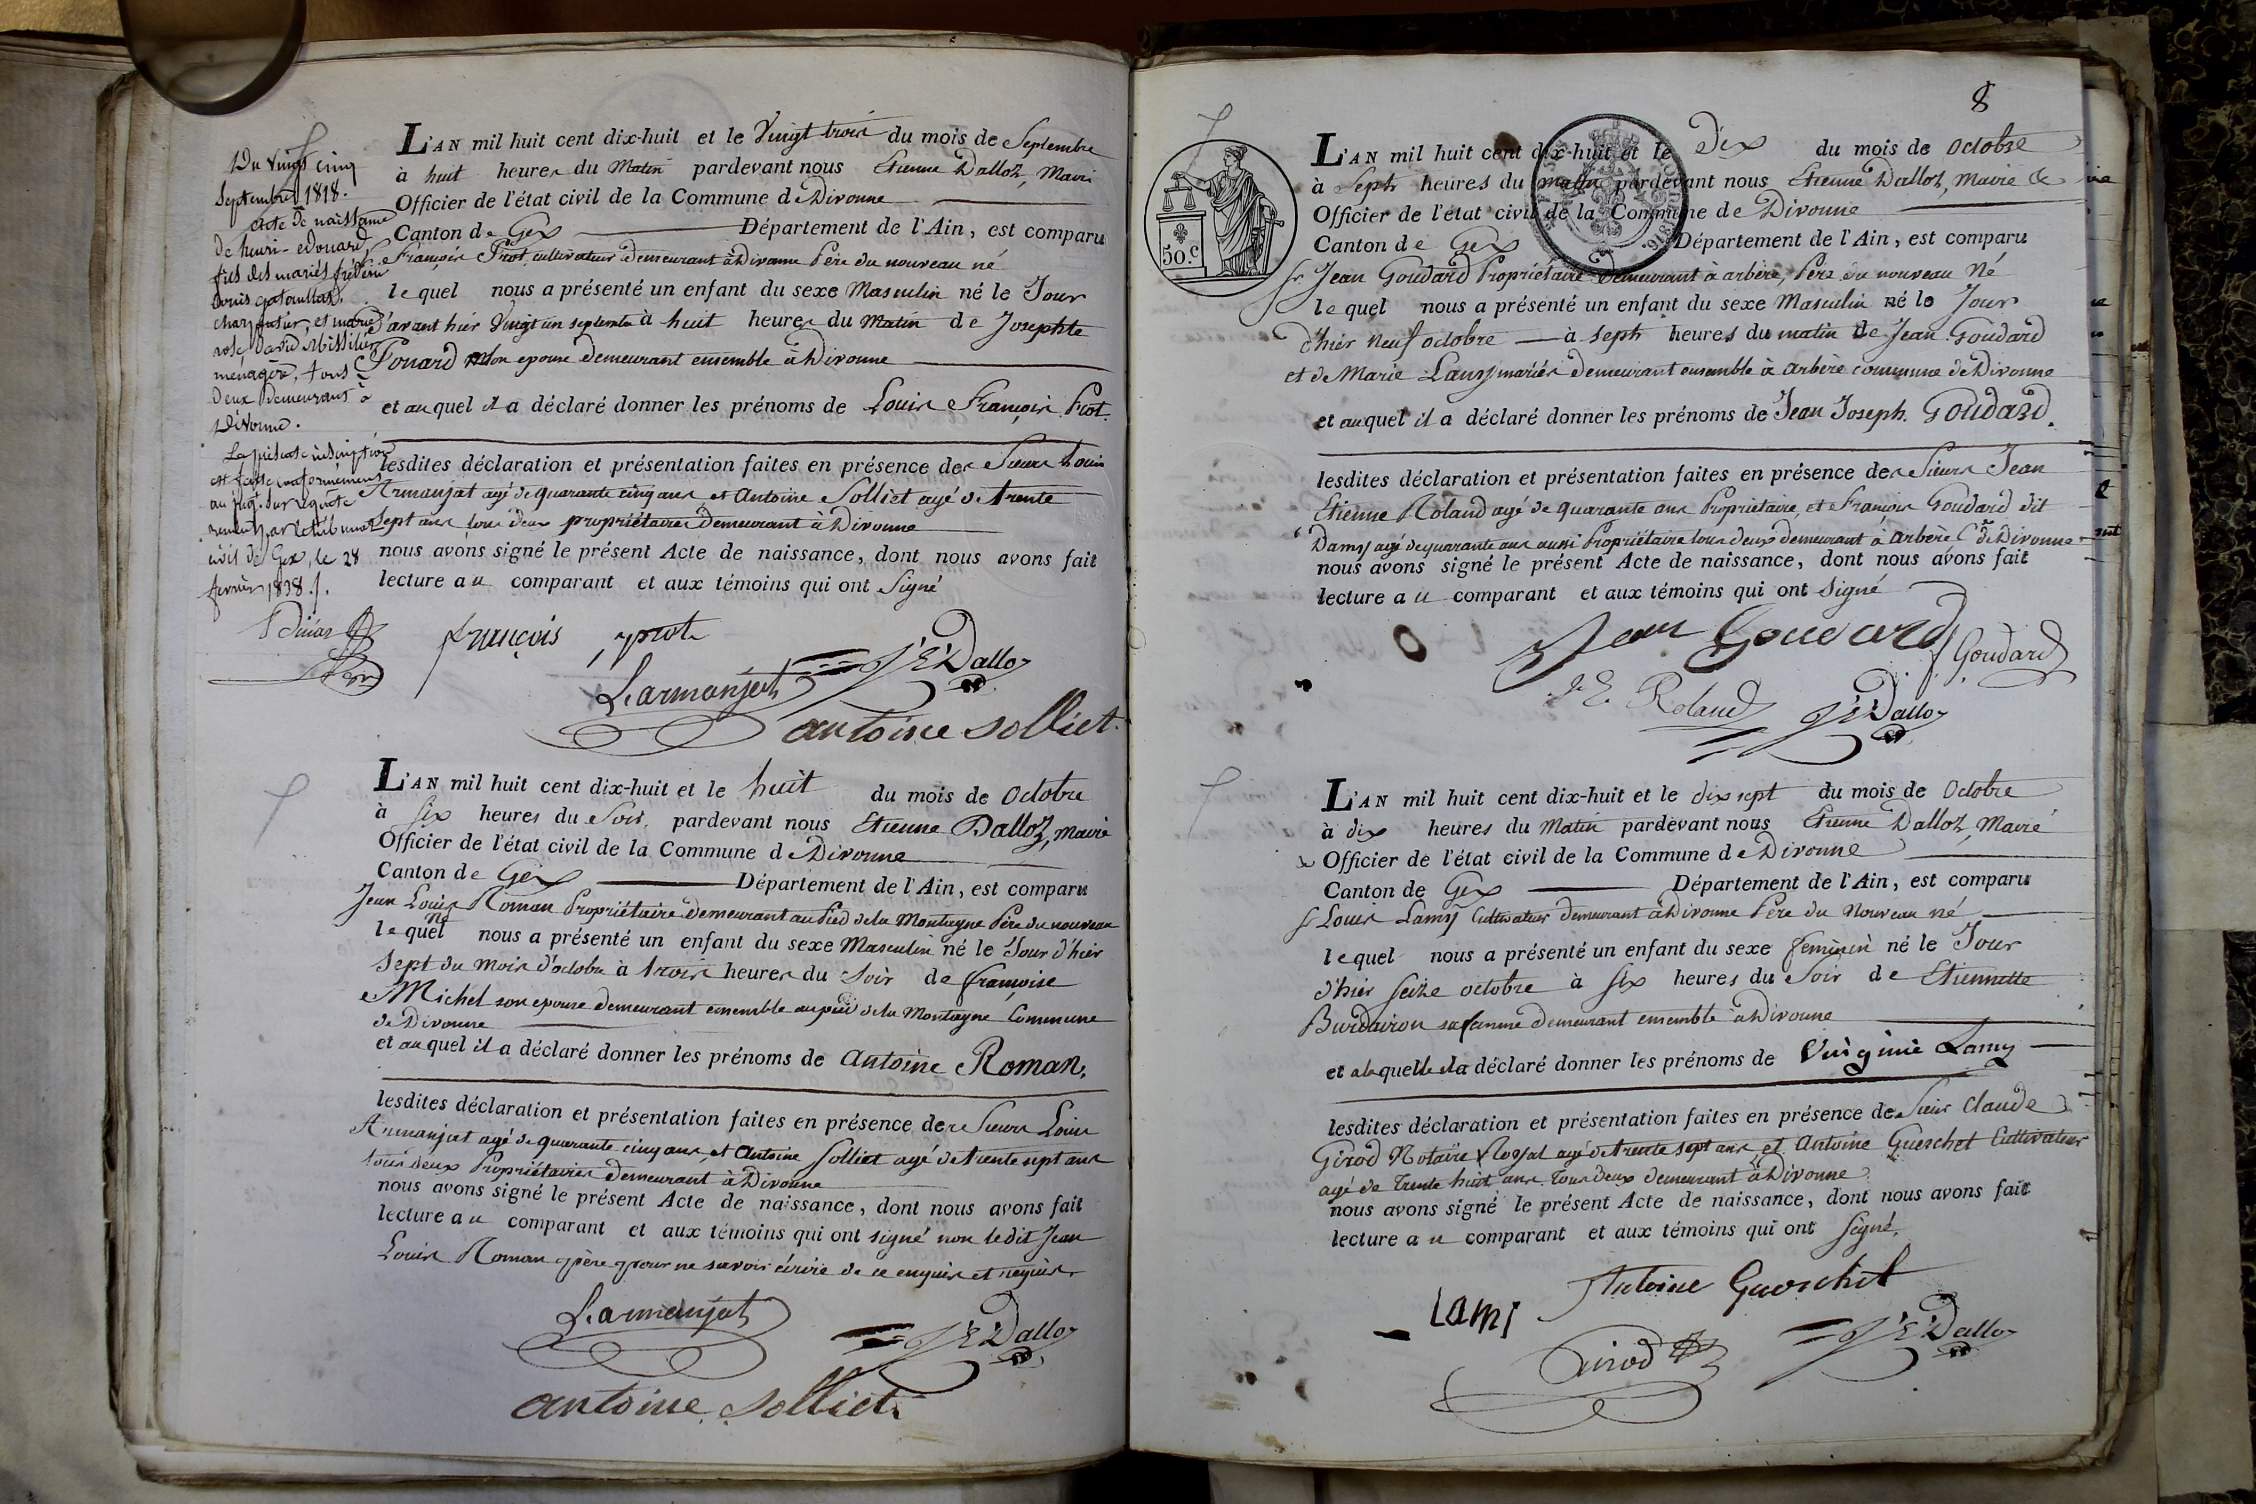 Du vingt cinq
Septembre 1818.
acte de naissance
de henri-edouard
fils des mariés frédéric
Louis
charpentier, et marie
rose David Missilier
menagère, tous
deux demeurant à
Divonne.
La présente inscription
est faite conformément
au jug.t sur requête
rendu par le tribunal
civil de Gex, le 28
février 1838.
L'AN mil huit cent dix-huit et le Vingt trois du mois de Septembre
à huit heures du Matin pardevant nous Etienne Dalloz, Maire
Officier de l'état civil de la Commune de Divonne
Canton de Gex Département de l'Ain, est comparu
François Prot cultivateur demeurant à Divonne Père du nouveau né
lequel nous a présenté un enfant du sexe Masculin né le Jour
d'avant hier Vingt un septembre à huit heures du Matin de Josephte
Fouard son epouse demeurant ensemble à Divonne
et auquel il a déclaré donner les prénoms de Louis François Prot.
lesdites déclaration et présentation faites en présence des Sieurs Louis
Armanjat agé de quarante cinq ans et Antoine Solliet agé de trente
sept ans tous deux propriétaires demeurant à Divonne
nous avons signé le présent Acte de naissance, dont nous avons fait
lecture au comparant et aux témoins qui ont Signé
françois prot
J E Dalloz
L. armanjat
antoine solliet
L'AN mil huit cent dix-huit et le huit du mois de Octobre
à Six heures du Soir pardevant nous Etienne Dalloz, Maire
Officier de l'état civil de la Commune de Divonne
Canton de Gex Département de l'Ain, est comparu
Jean Louis Roman Propriétaire demeurant au Pied de la Montagne Père du nouveau
né
lequel nous a présenté un enfant du sexe Masculin né le Jour d'hier
Sept du mois d'octobre à trois heures du Soir de françoise
Michel son epouse demeurant ensemble au pied de la Montagne Commune
de Divonne
et auquel il a déclaré donner les prénoms de Antoine Roman.
lesdites déclaration et présentation faites en présence des Sieurs Louis
Armanjat agé de quarante cinq ans, et Antoine Solliet agé de trente sept ans
tous deux Propriétaires demeurant à Divonne
nous avons signé le présent Acte de naissance, dont nous avons fait
lecture au comparant et aux témoins qui ont signé non ledit Jean
Louis Roman père pour ne savoir écrire de ce enquis et requis.
L. armanjat
J E Dalloz
antoine solliet
8
50.c
L'AN mil huit cent dix-huit et le Dix du mois de Octobre
à Sept heures du matin pardevant nous Etienne Dalloz, Maire &
Officier de l'état civil de la Commune de Divonne
Canton de Gex Département de l'Ain, est comparu
Sr Jean Goudard Propriétaire demeurant à arbère, Père du nouveau Né
lequel nous a présenté un enfant du sexe Masculin né le Jour
d'hier Neuf octobre à sept heures du matin de Jean Goudard
et de Marie Lamy mariés demeurant ensemble à arbère commune de Divonne
et auquel il a déclaré donner les prénoms de Jean Joseph. Goudard.
lesdites déclaration et présentation faites en présence des Sieurs Jean
Etienne Roland agé de quarante ans Propriétaire, et François Goudard dit
Damy agé de quarante ans aussi Propriétaire tous deux demeurant à arbère C.ne de Divonne
nous avons signé le présent Acte de naissance, dont nous avons fait
lecture au comparant et aux témoins qui ont Signé
Jean Goudard
f. Goudard
J. E. Roland
J E Dalloz
L'AN mil huit cent dix-huit et le dix sept du mois de Octobre
à dix heures du Matin pardevant nous Etienne Dalloz, Maire
& Officier de l'état civil de la Commune de Divonne
Canton de Gex Département de l'Ain, est comparu
Sr Louis Lamy Cultivateur demeurant à Divonne Père du Nouveau né
lequel nous a présenté un enfant du sexe feminin né le Jour
d'hier Seize octobre à Six heures du Soir de Etiennette
Burdairon sa famme demeurant ensemble à Divonne
et a laquelle il a déclaré donner les prénoms de Virginie Lamy
lesdites déclaration et présentation faites en présence de Sieur Claude
Girod Notaire Royal agé de trente sept ans, et Antoine Gueschet Cultivateur
agé de Trente huit ans tous deux demeurant à Divonne
nous avons signé le présent Acte de naissance, dont nous avons fait
lecture au comparant et aux témoins qui ont Signé.
Antoine Gueschet
Lami
J E Dalloz
Girod